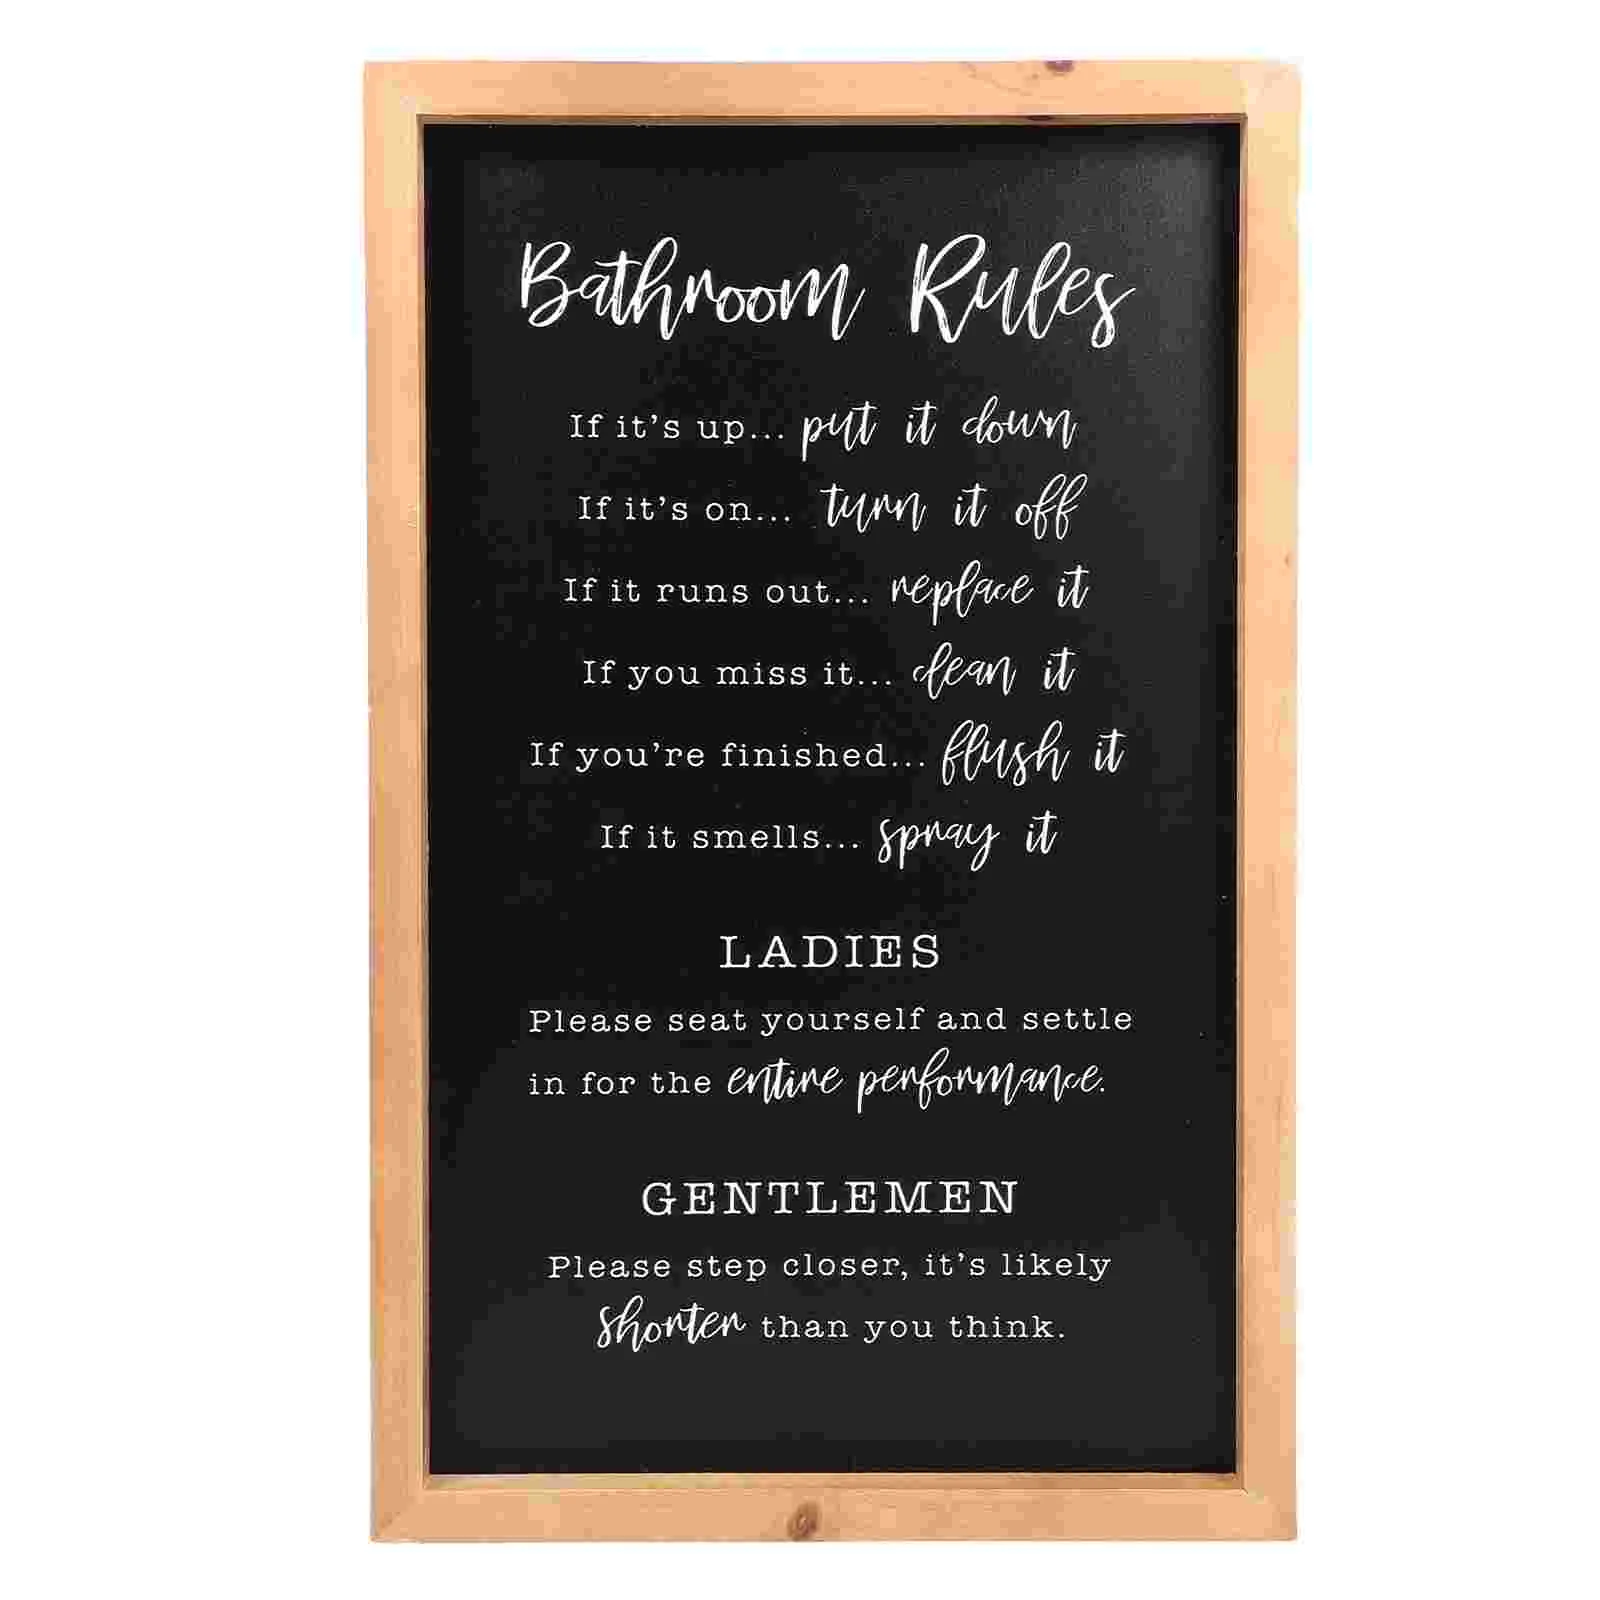 Bathroom Rules
If it's up... put it down
If it's on... turn it off
If it runs out... replace it
If you miss it... clean it
If you're finished... flush it
If it smells... spray it
LADIES
Please seat yourself and settle
in for the entire performance.
GENTLEMEN
Please step closer, it's likely
shorter than you think.